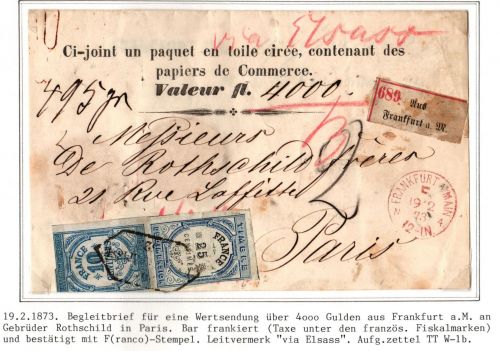 via Elsass
Ci-joint un paquet en toile cirée, contenant des
papiers de Commerce.
Valeur fl. 4000.
495 gr
689 Aus
Frankfurt a. M.
Messieurs
De Rothschild Frères
21 Rue Laffitte
Paris
2
FRANKFURT A. MAIN
5
19 2
73
12-1N.
TIMBRE
FRANCE
10
FRANCE
25
CENTIMES
19.2.1873. Begleitbrief für eine Wertsendung über 4000 Gulden aus Frankfurt a.M. an
Gebrüder Rothschild in Paris. Bar frankiert (Taxe unter den französ. Fiskalmarken)
und bestätigt mit F(ranco)-Stempel. Leitvermerk "via Elsass". Aufg.zettel TT W-1b.